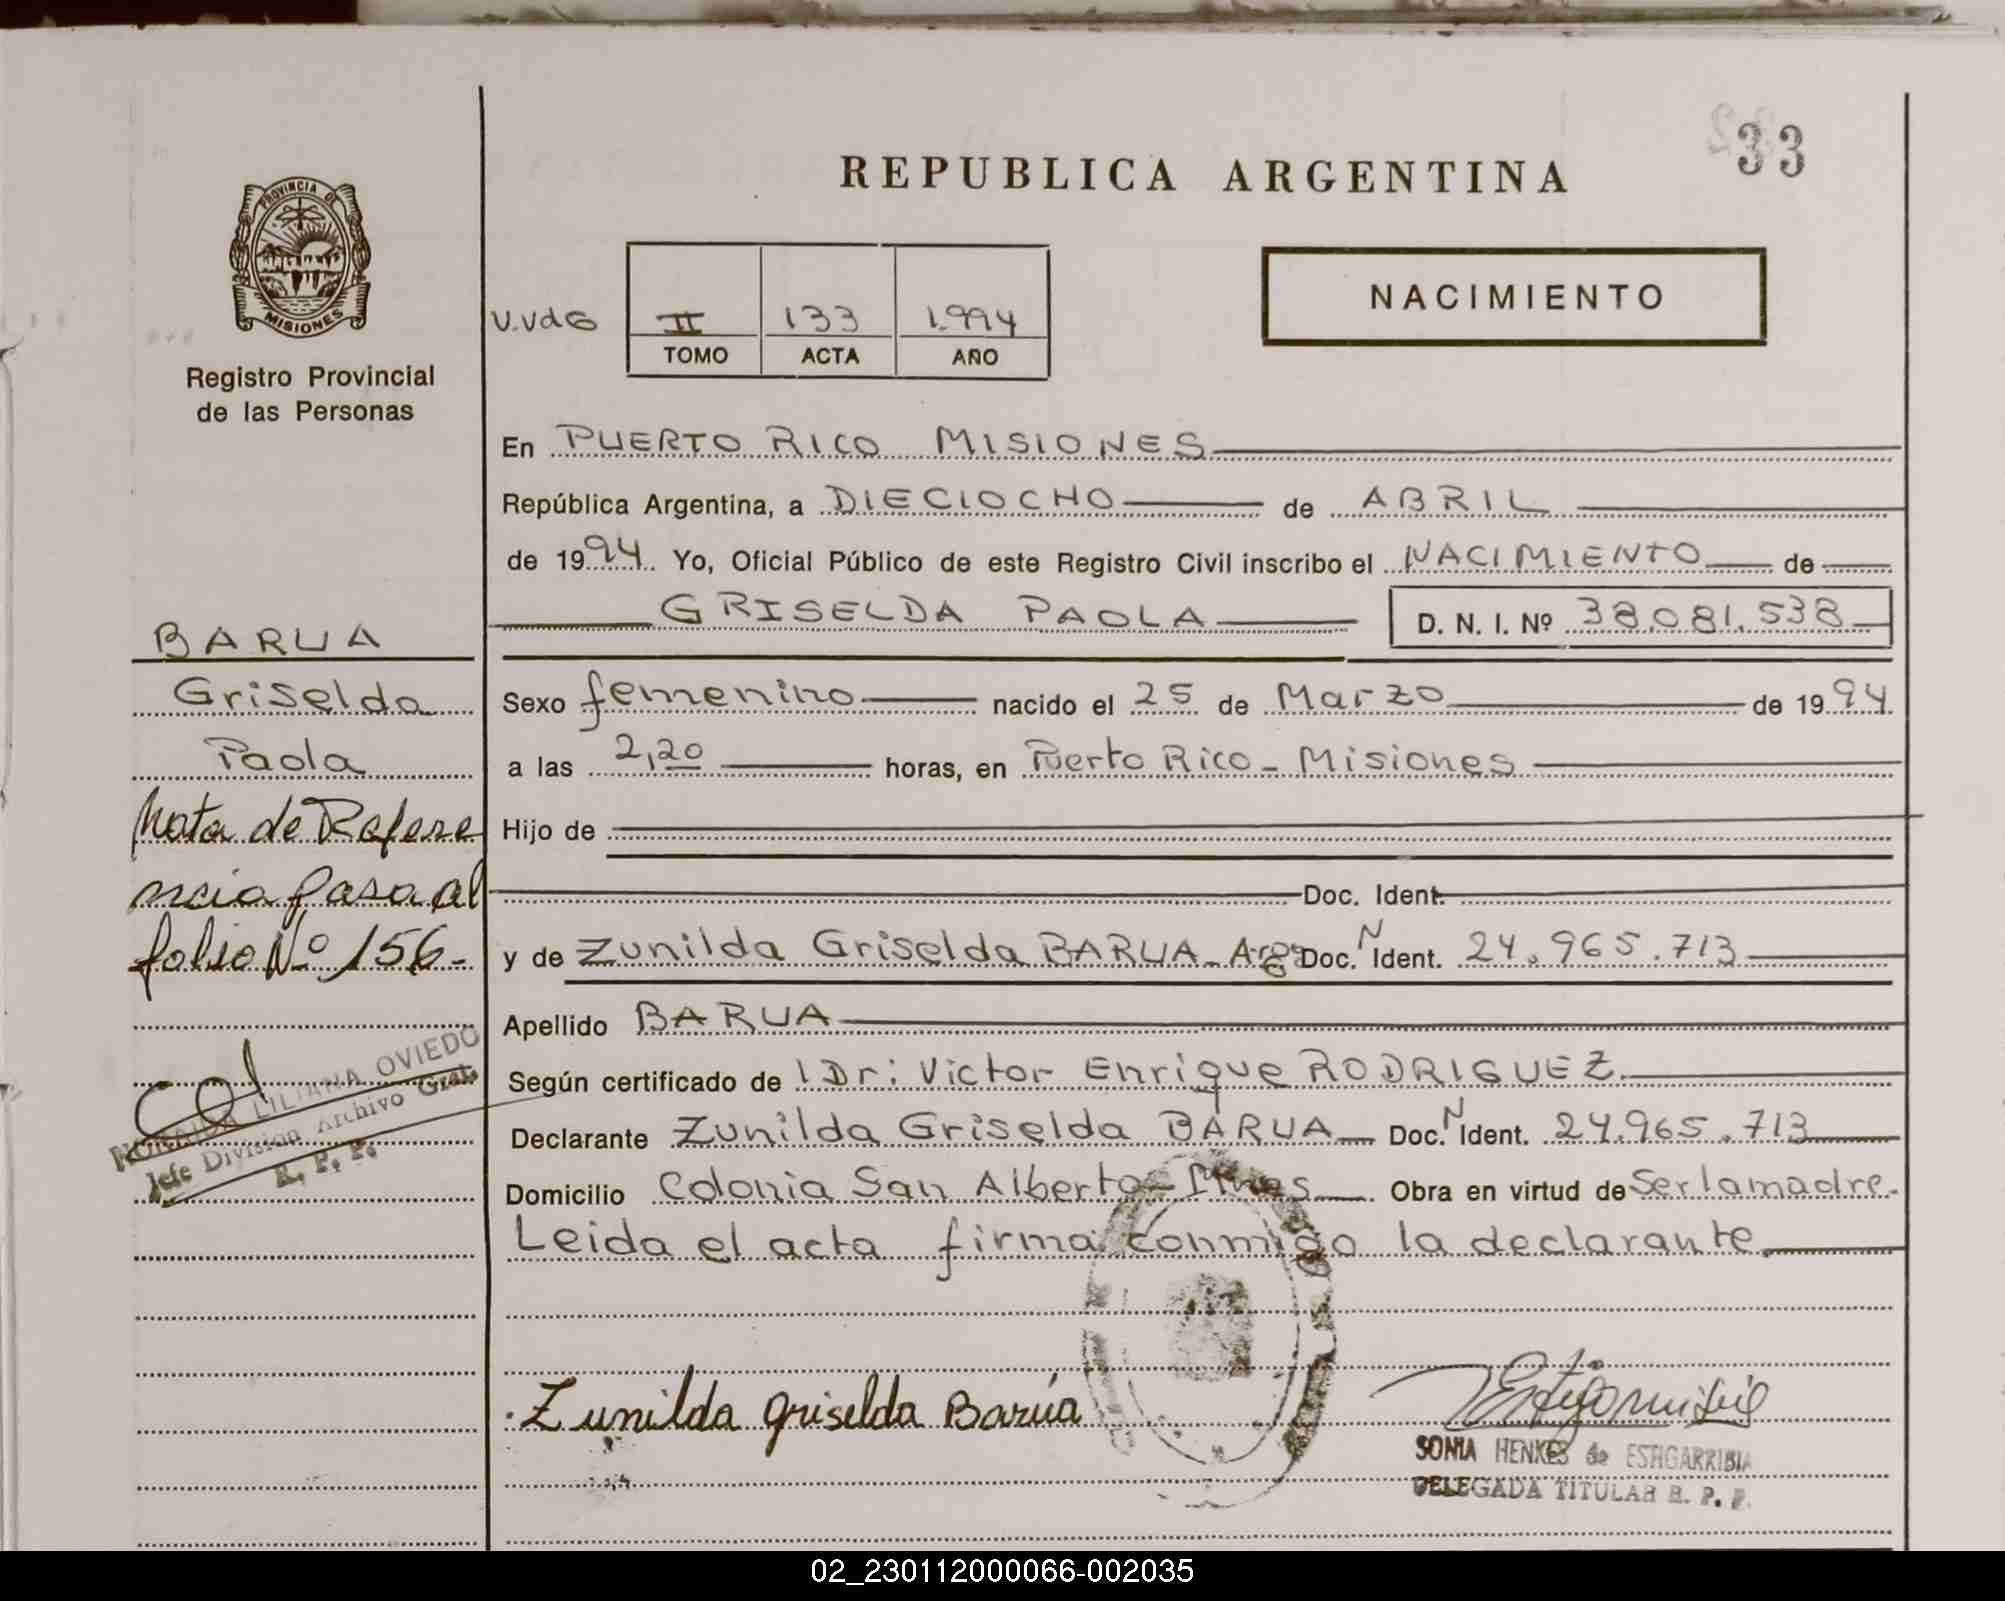 33
REPUBLICA ARGENTINA
PROVINCIA DE
MISIONES
Registro Provincial
de las Personas
V.VdG
II 133 1.994
TOMO ACTA AÑO
NACIMIENTO
En PUERTO RICO MISIONES
República Argentina, a DIECIOCHO de ABRIL
de 1994. Yo, Oficial Público de este Registro Civil inscribo el NACIMIENTO de
GRISELDA PAOLA D. N. I. Nº 38.081.538
BARUA
Griselda
Paola
Nota de Refere
ncia pasa al
folio Nº 156.-
LILIANA OVIEDO
Jefe División Archivo Gral.
R. P. P.
Sexo femenino nacido el 25 de Marzo de 1994
a las 2,20 horas, en Puerto Rico - Misiones
Hijo de
Doc. Ident.
y de Zunilda Griselda BARUA - Arg Doc. N Ident. 24.965.713
Apellido BARUA
Según certificado de l Dr: Victor Enrique RODRIGUEZ.
Declarante Zunilda Griselda BARUA Doc. N Ident. 24.965.713
Domicilio Colonia San Alberto - Mnes Obra en virtud de Ser la madre.
Leida el acta firma conmigo la declarante.
Zunilda Griselda Barúa
SONIA HENKES de ESTIGARRIBIA
DELEGADA TITULAR R. P. P.
02_230112000066-002035